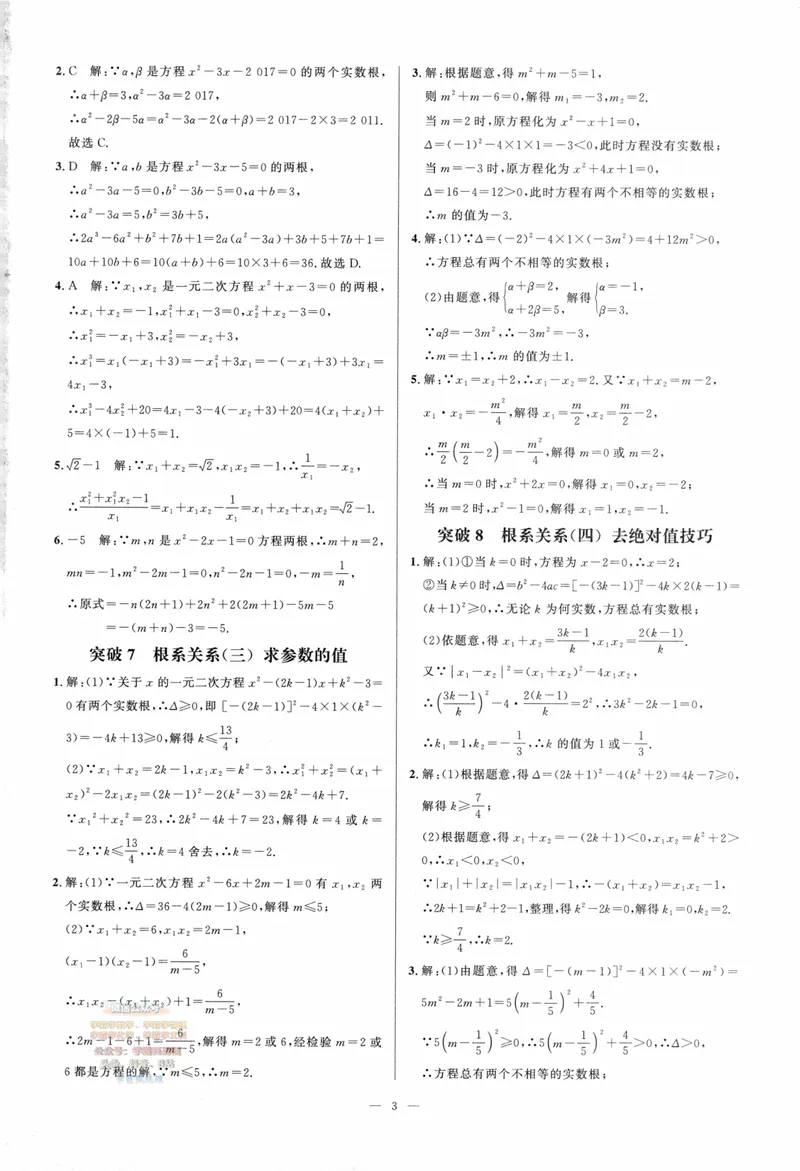 2. C 解:∵α,β 是方程 x²-3x-2 017=0 的两个实数根,
∴α+β=3,α²-3α=2 017,
∴α²-2β-5α=α²-3α-2(α+β)=2 017-2×3=2 011.
故选 C.
3. D 解:∵a,b 是方程 x²-3x-5=0 的两根,
∴a²-3a-5=0,b²-3b-5=0,a+b=3,
∴a²-3a=5,b²=3b+5,
∴2a³-6a²+b²+7b+1=2a(a²-3a)+3b+5+7b+1=
10a+10b+6=10(a+b)+6=10×3+6=36.故选 D.
4. A 解:∵x₁,x₂ 是一元二次方程 x²+x-3=0 的两根,
∴x₁+x₂=-1,x₁²+x₁-3=0,x₂²+x₂-3=0,
∴x₁²=-x₁+3,x₂²=-x₂+3,
∴x₁³=x₁(-x₁+3)=-x₁²+3x₁=-(-x₁+3)+3x₁=
4x₁-3,
∴x₁³-4x₂²+20=4x₁-3-4(-x₂+3)+20=4(x₁+x₂)+
5=4×(-1)+5=1.
5. √2-1 解:∵x₁+x₂=√2,x₁x₂=-1,∴1/x₁=-x₂,
∴(x₁²+x₁²x₂-1)/x₁=x₁+x₁x₂-1/x₁=x₁+x₂+x₁x₂=√2-1.
6. -5 解:∵m,n 是 x²-2x-1=0 方程两根,∴m+n=2,
mn=-1,m²-2m-1=0,n²-2n-1=0,-m=1/n,
∴原式=-n(2n+1)+2n²+2(2m+1)-5m-5
=-(m+n)-3=-5.
突破 7 根系关系(三) 求参数的值
1. 解:(1)∵关于 x 的一元二次方程 x²-(2k-1)x+k²-3=
0 有两个实数根,∴Δ≥0,即 [-(2k-1)]²-4×1×(k²-
3)=-4k+13≥0,解得 k≤13/4;
(2)∵x₁+x₂=2k-1,x₁x₂=k²-3,∴x₁²+x₂²=(x₁+
x₂)²-2x₁x₂=(2k-1)²-2(k²-3)=2k²-4k+7.
∵x₁²+x₂²=23,∴2k²-4k+7=23,解得 k=4 或 k=
-2,∵k≤13/4,∴k=4 舍去,∴k=-2.
2. 解:(1)∵一元二次方程 x²-6x+2m-1=0 有 x₁,x₂ 两
个实数根,∴Δ=36-4(2m-1)≥0,解得 m≤5;
(2)∵x₁+x₂=6,x₁x₂=2m-1,
(x₁-1)(x₂-1)=6/(m-5),
∴x₁x₂-(x₁+x₂)+1=6/(m-5),
∴2m-1-6+1=6/(m-5),解得 m=2 或 6,经检验 m=2 或
6 都是方程的解,∵m≤5,∴m=2.
3. 解:根据题意,得 m²+m-5=1,
则 m²+m-6=0,解得 m₁=-3,m₂=2.
当 m=2 时,原方程化为 x²-x+1=0,
Δ=(-1)²-4×1×1=-3<0,此时方程没有实数根;
当 m=-3 时,原方程化为 x²+4x+1=0,
Δ=16-4=12>0,此时方程有两个不相等的实数根;
∴m 的值为-3.
4. 解:(1)∵Δ=(-2)²-4×1×(-3m²)=4+12m²>0,
∴方程总有两个不相等的实数根;
(2)由题意,得{α+β=2, α+2β=5, 解得{α=-1, β=3.
∵αβ=-3m²,∴-3m²=-3,
∴m=±1,∴m 的值为±1.
5. 解:∵x₁=x₂+2,∴x₁-x₂=2.又∵x₁+x₂=m-2,
x₁·x₂=-m²/4,解得 x₁=m/2,x₂=m/2-2,
∴m/2(m/2-2)=-m²/4,解得 m=0 或 m=2,
∴当 m=0 时,x²+2x=0,解得 x₁=0,x₂=-2;
当 m=2 时,x²-1=0,解得 x₁=1,x₂=-1.
突破 8 根系关系(四) 去绝对值技巧
1. 解:(1)①当 k=0 时,方程为 x-2=0,∴x=2;
②当 k≠0 时,Δ=b²-4ac=[-(3k-1)]²-4k×2(k-1)=
(k+1)²≥0,∴无论 k 为何实数,方程总有实数根;
(2)依题意,得 x₁+x₂=(3k-1)/k,x₁x₂=2(k-1)/k.
又∵|x₁-x₂|²=(x₁+x₂)²-4x₁x₂,
∴((3k-1)/k)²-4·2(k-1)/k=2²,∴3k²-2k-1=0,
∴k₁=1,k₂=-1/3,∴k 的值为 1 或-1/3.
2. 解:(1)根据题意,得 Δ=(2k+1)²-4(k²+2)=4k-7≥0,
解得 k≥7/4;
(2)根据题意,得 x₁+x₂=-(2k+1)<0,x₁x₂=k²+2>
0,∴x₁<0,x₂<0,
∵|x₁|+|x₂|=|x₁x₂|-1,∴-(x₁+x₂)=x₁x₂-1,
∴2k+1=k²+2-1,整理,得 k²-2k=0,解得 k₁=0,k₂=2.
∵k≥7/4,∴k=2.
3. 解:(1)由题意,得 Δ=[-(m-1)]²-4×1×(-m²)=
5m²-2m+1=5(m-1/5)²+4/5.
∵5(m-1/5)²≥0,∴5(m-1/5)²+4/5>0,∴Δ>0,
∴方程总有两个不相等的实数根;
— 3 —